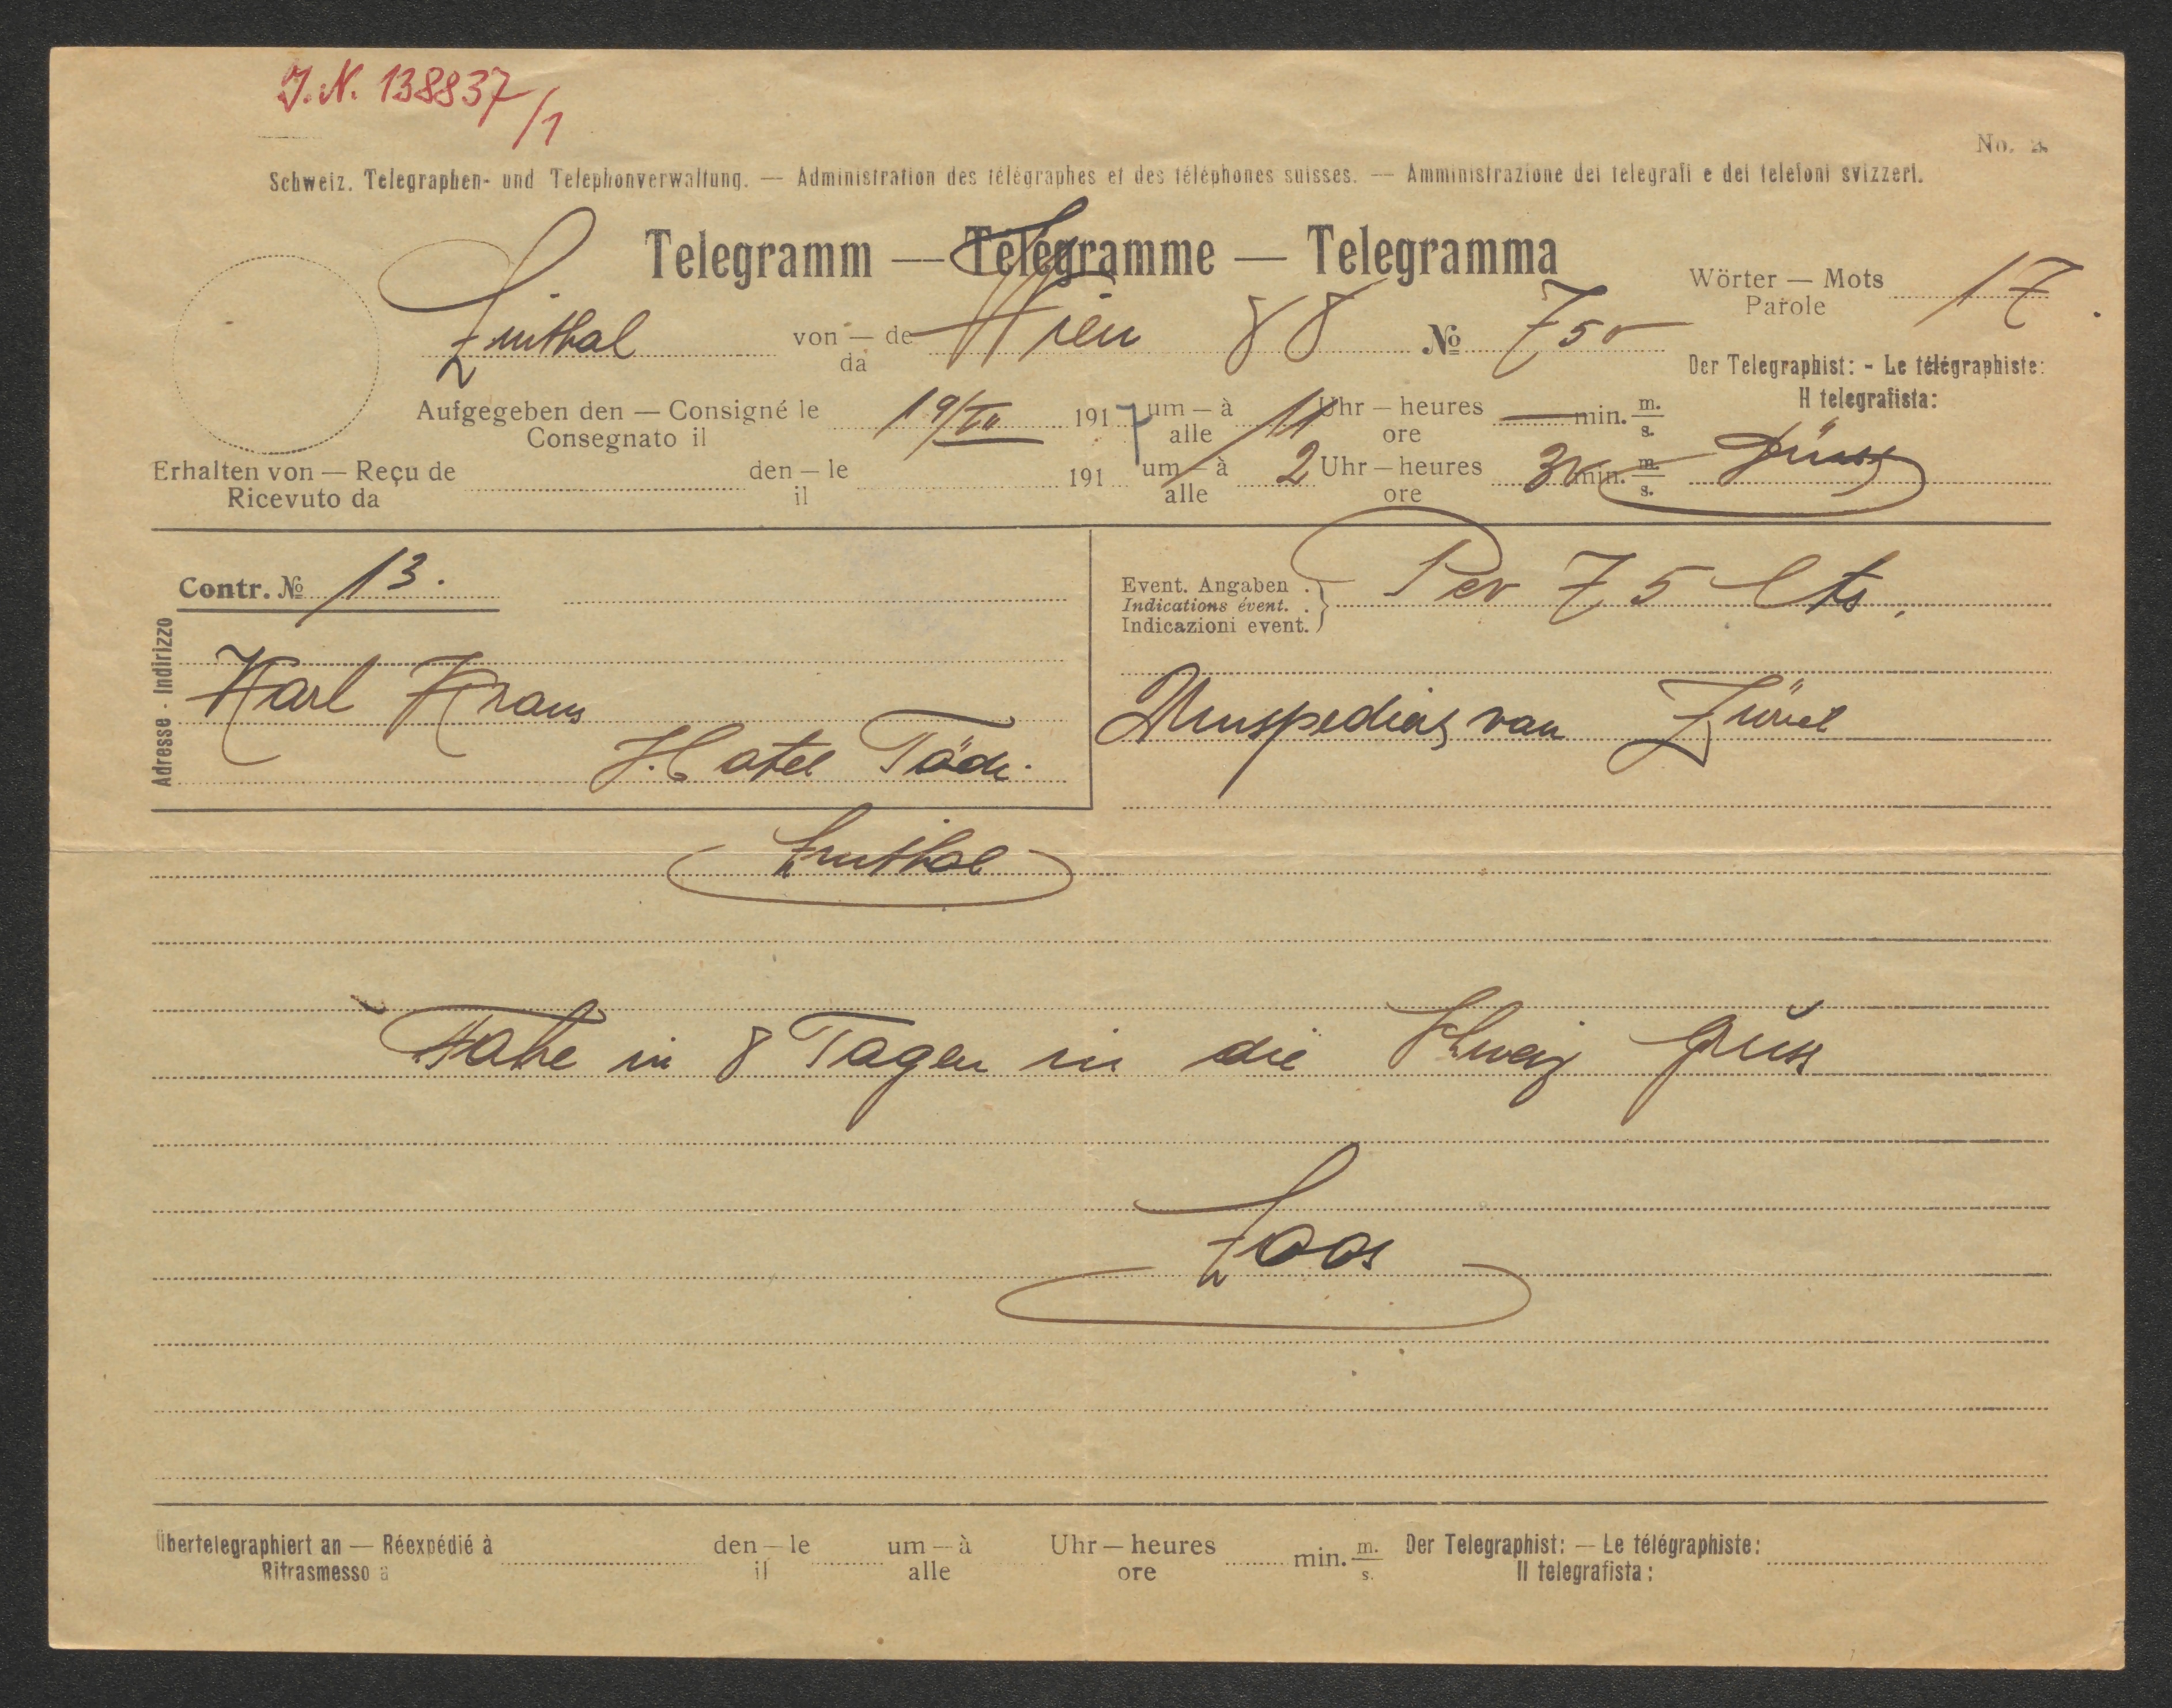 J.N. 138837/1
No. 2.
Schweiz. Telegraphen- und Telephonverwaltung. — Administration des télégraphes et des téléphones suisses. — Amministrazione dei telegrafi e dei telefoni svizzeri.
Telegramm — Telegramme — Telegramma
Wörter — Mots 17
Parole
Linthal von — de Wien 88 № 750
da
Der Telegraphist: - Le télégraphiste:
Il telegrafista:
Aufgegeben den — Consigné le 19/VII 1917 um — à 11 Uhr — heures — min. m.
Consegnato il alle ore s.
Erhalten von — Reçu de den — le 191 um — à 2 Uhr — heures 30 min. m.
Ricevuto da il alle ore s.
Contr. № 13.
Event. Angaben
Indications évent.
Indicazioni event.
Per 75 Cts.
Adresse - Indirizzo
Karl Kraus
Hotel Tödi
von Zürich
Linthal
Habe in 8 Tagen in die Schweiz Gruss
Loos
Übertelegraphiert an — Réexpédié à den — le um — à Uhr — heures min. m. Der Telegraphist: — Le télégraphiste:
Ritrasmesso a il alle ore s. Il telegrafista: